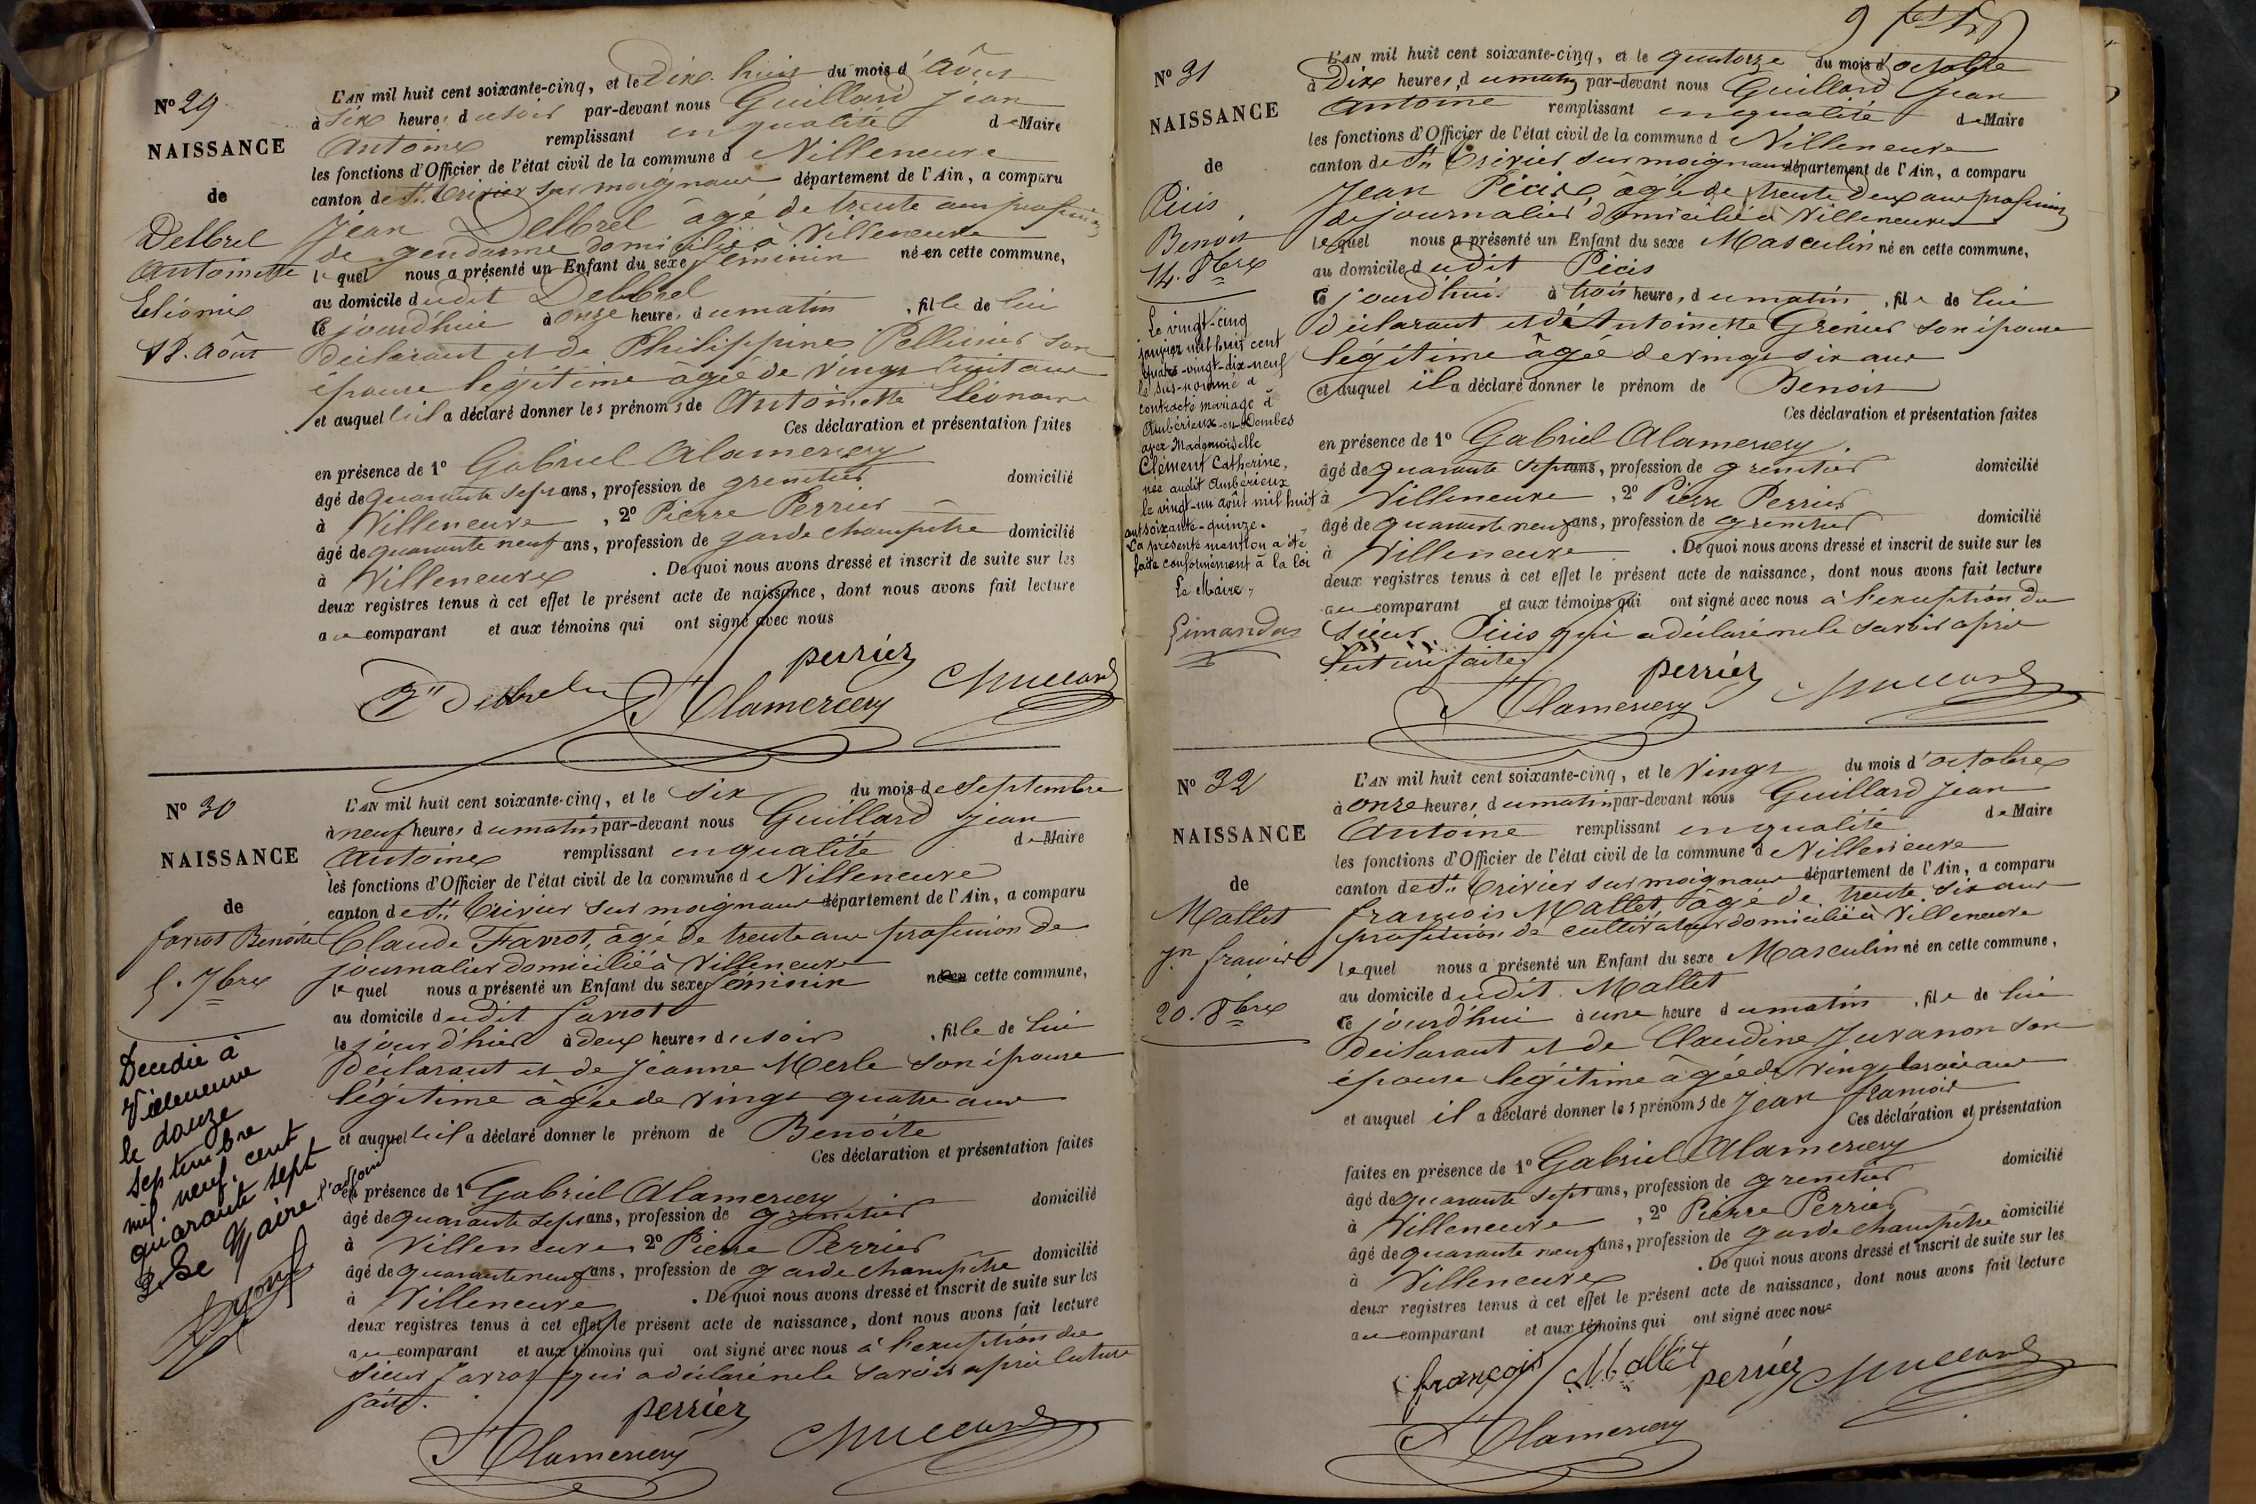 N° 29
NAISSANCE
de
Delbrel
Antoinette
Eléonie
18. Août
L'AN mil huit cent soixante-cinq, et le Dix huit du mois d'Août
à six heures du soir par-devant nous Guillard Jean
Antoine remplissant en qualité de Maire
les fonctions d'Officier de l'état civil de la commune d Villeneuve
canton de St Trivier sur moignans département de l'Ain, a comparu
Jean Delbrel âgé de trente ans profession
de gendarme domicilié à Villeneuve
lequel nous a présenté un Enfant du sexe féminin né en cette commune,
au domicile dudit Delbrel
ce jourd'hui à onze heures du matin, fille de lui
déclarant et de Philippine Pellinier son
épouse légitime âgée de vingt huit ans
et auquel il a déclaré donner les prénoms de Antoinette Eléonore
Ces déclaration et présentation faites
en présence de 1° Gabriel Alamercery
âgé de quarante sept ans, profession de grenetier domicilié
à Villeneuve, 2° Pierre Perrier
âgé de quarante neuf ans, profession de garde champêtre domicilié
à Villeneuve. De quoi nous avons dressé et inscrit de suite sur les
deux registres tenus à cet effet le présent acte de naissance, dont nous avons fait lecture
au comparant et aux témoins qui ont signé avec nous
perriér
Delbrel Alamercery Guillard
N° 30
NAISSANCE
de
farrot Benoîte
5. 7bre
Décédée à
Villeneuve
le douze
septembre
mil. neuf. cent
quarante sept
Le Maire
L'AN mil huit cent soixante-cinq, et le six du mois de Septembre
à neuf heures du matin par-devant nous Guillard Jean
Antoine remplissant en qualité de Maire
les fonctions d'Officier de l'état civil de la commune d Villeneuve
canton de St Trivier sur moignans département de l'Ain, a comparu
Claude Farrot, âgé de trente ans profession de
journalier domicilié à Villeneuve
lequel nous a présenté un Enfant du sexe féminin né en cette commune,
au domicile dudit farrot
le jour d'hier à deux heures du soir, fille de lui
déclarant et de Jeanne Merle son épouse
légitime âgée de vingt quatre ans
et auquel il a déclaré donner le prénom de Benoîte
Ces déclaration et présentation faites
en présence de 1° Gabriel Alamercery
âgé de quarante sept ans, profession de grenetier domicilié
à Villeneuve 2° Pierre Perrier
âgé de quarante neuf ans, profession de garde champêtre domicilié
à Villeneuve. De quoi nous avons dressé et inscrit de suite sur les
deux registres tenus à cet effet le présent acte de naissance, dont nous avons fait lecture
au comparant et aux témoins qui ont signé avec nous à l'exception du
sieur farrot qui a déclaré ne le savoir après lecture
faite.
perriér
Alamercery Guillard
N° 31
NAISSANCE
de
Picis
Benoit
14. 8bre
Le vingt-cinq
janvier mil huit cent
quatre-vingt-dix-neuf
le sus-nommé a
contracté mariage à
Ambérieux-en-Dombes
avec Mademoiselle
Clément Catherine,
née audit Ambérieux
le vingt-un août mil huit
cent soixante-quinze.
La présente mention a été
faite conformément à la loi
Le Maire,
Limandas
L'AN mil huit cent soixante-cinq, et le quatorze du mois d'octobre
à Dix heures du matin par-devant nous Guillard Jean
Antoine remplissant en qualité de Maire
les fonctions d'Officier de l'état civil de la commune d Villeneuve
canton de St Trivier sur moignans département de l'Ain, a comparu
Jean Picis, âgé de trente deux ans profession
de journalier, domicilié à Villeneuve
lequel nous a présenté un Enfant du sexe Masculin né en cette commune,
au domicile dudit Picis
ce jourd'hui à trois heures du matin, fils de lui
déclarant et de Antoinette Grénier son épouse
légitime âgée de vingt six ans
et auquel il a déclaré donner le prénom de Benoit
Ces déclaration et présentation faites
en présence de 1° Gabriel Alamercery.
âgé de quarante sept ans, profession de grenetier domicilié
à Villeneuve, 2° Pierre Perrier
âgé de quarante neuf ans, profession de grenetier domicilié
à Villeneuve. De quoi nous avons dressé et inscrit de suite sur les
deux registres tenus à cet effet le présent acte de naissance, dont nous avons fait lecture
au comparant et aux témoins qui ont signé avec nous à l'exception du
sieur Picis qui a déclaré ne le savoir après
lecture faite
perriér
Alamercery Guillard
N° 32
NAISSANCE
de
Mallet
Jn françois
20. 8bre
L'AN mil huit cent soixante-cinq, et le vingt du mois d'octobre
à onze heures du matin par-devant nous Guillard Jean
Antoine remplissant en qualité de Maire
les fonctions d'Officier de l'état civil de la commune d Villeneuve
canton de St Trivier sur moignans département de l'Ain, a comparu
françois Mallet, âgé de trente six ans
profession de cultivateur domicilié à Villeneuve
lequel nous a présenté un Enfant du sexe Masculin né en cette commune,
au domicile dudit Mallet
ce jourd'hui à une heure du matin, fils de lui
déclarant et de Claudine Juvanon son
épouse légitime âgée de vingt trois ans
et auquel il a déclaré donner les prénoms de Jean françois
Ces déclaration et présentation
faites en présence de 1° Gabriel Alamercery
âgé de quarante sept ans, profession de grenetier domicilié
à Villeneuve, 2° Pierre Perrier
âgé de quarante neuf ans, profession de garde champêtre domicilié
à Villeneuve. De quoi nous avons dressé et inscrit de suite sur les
deux registres tenus à cet effet le présent acte de naissance, dont nous avons fait lecture
au comparant et aux témoins qui ont signé avec nous
françois Mallet perriér Guillard
Alamercery